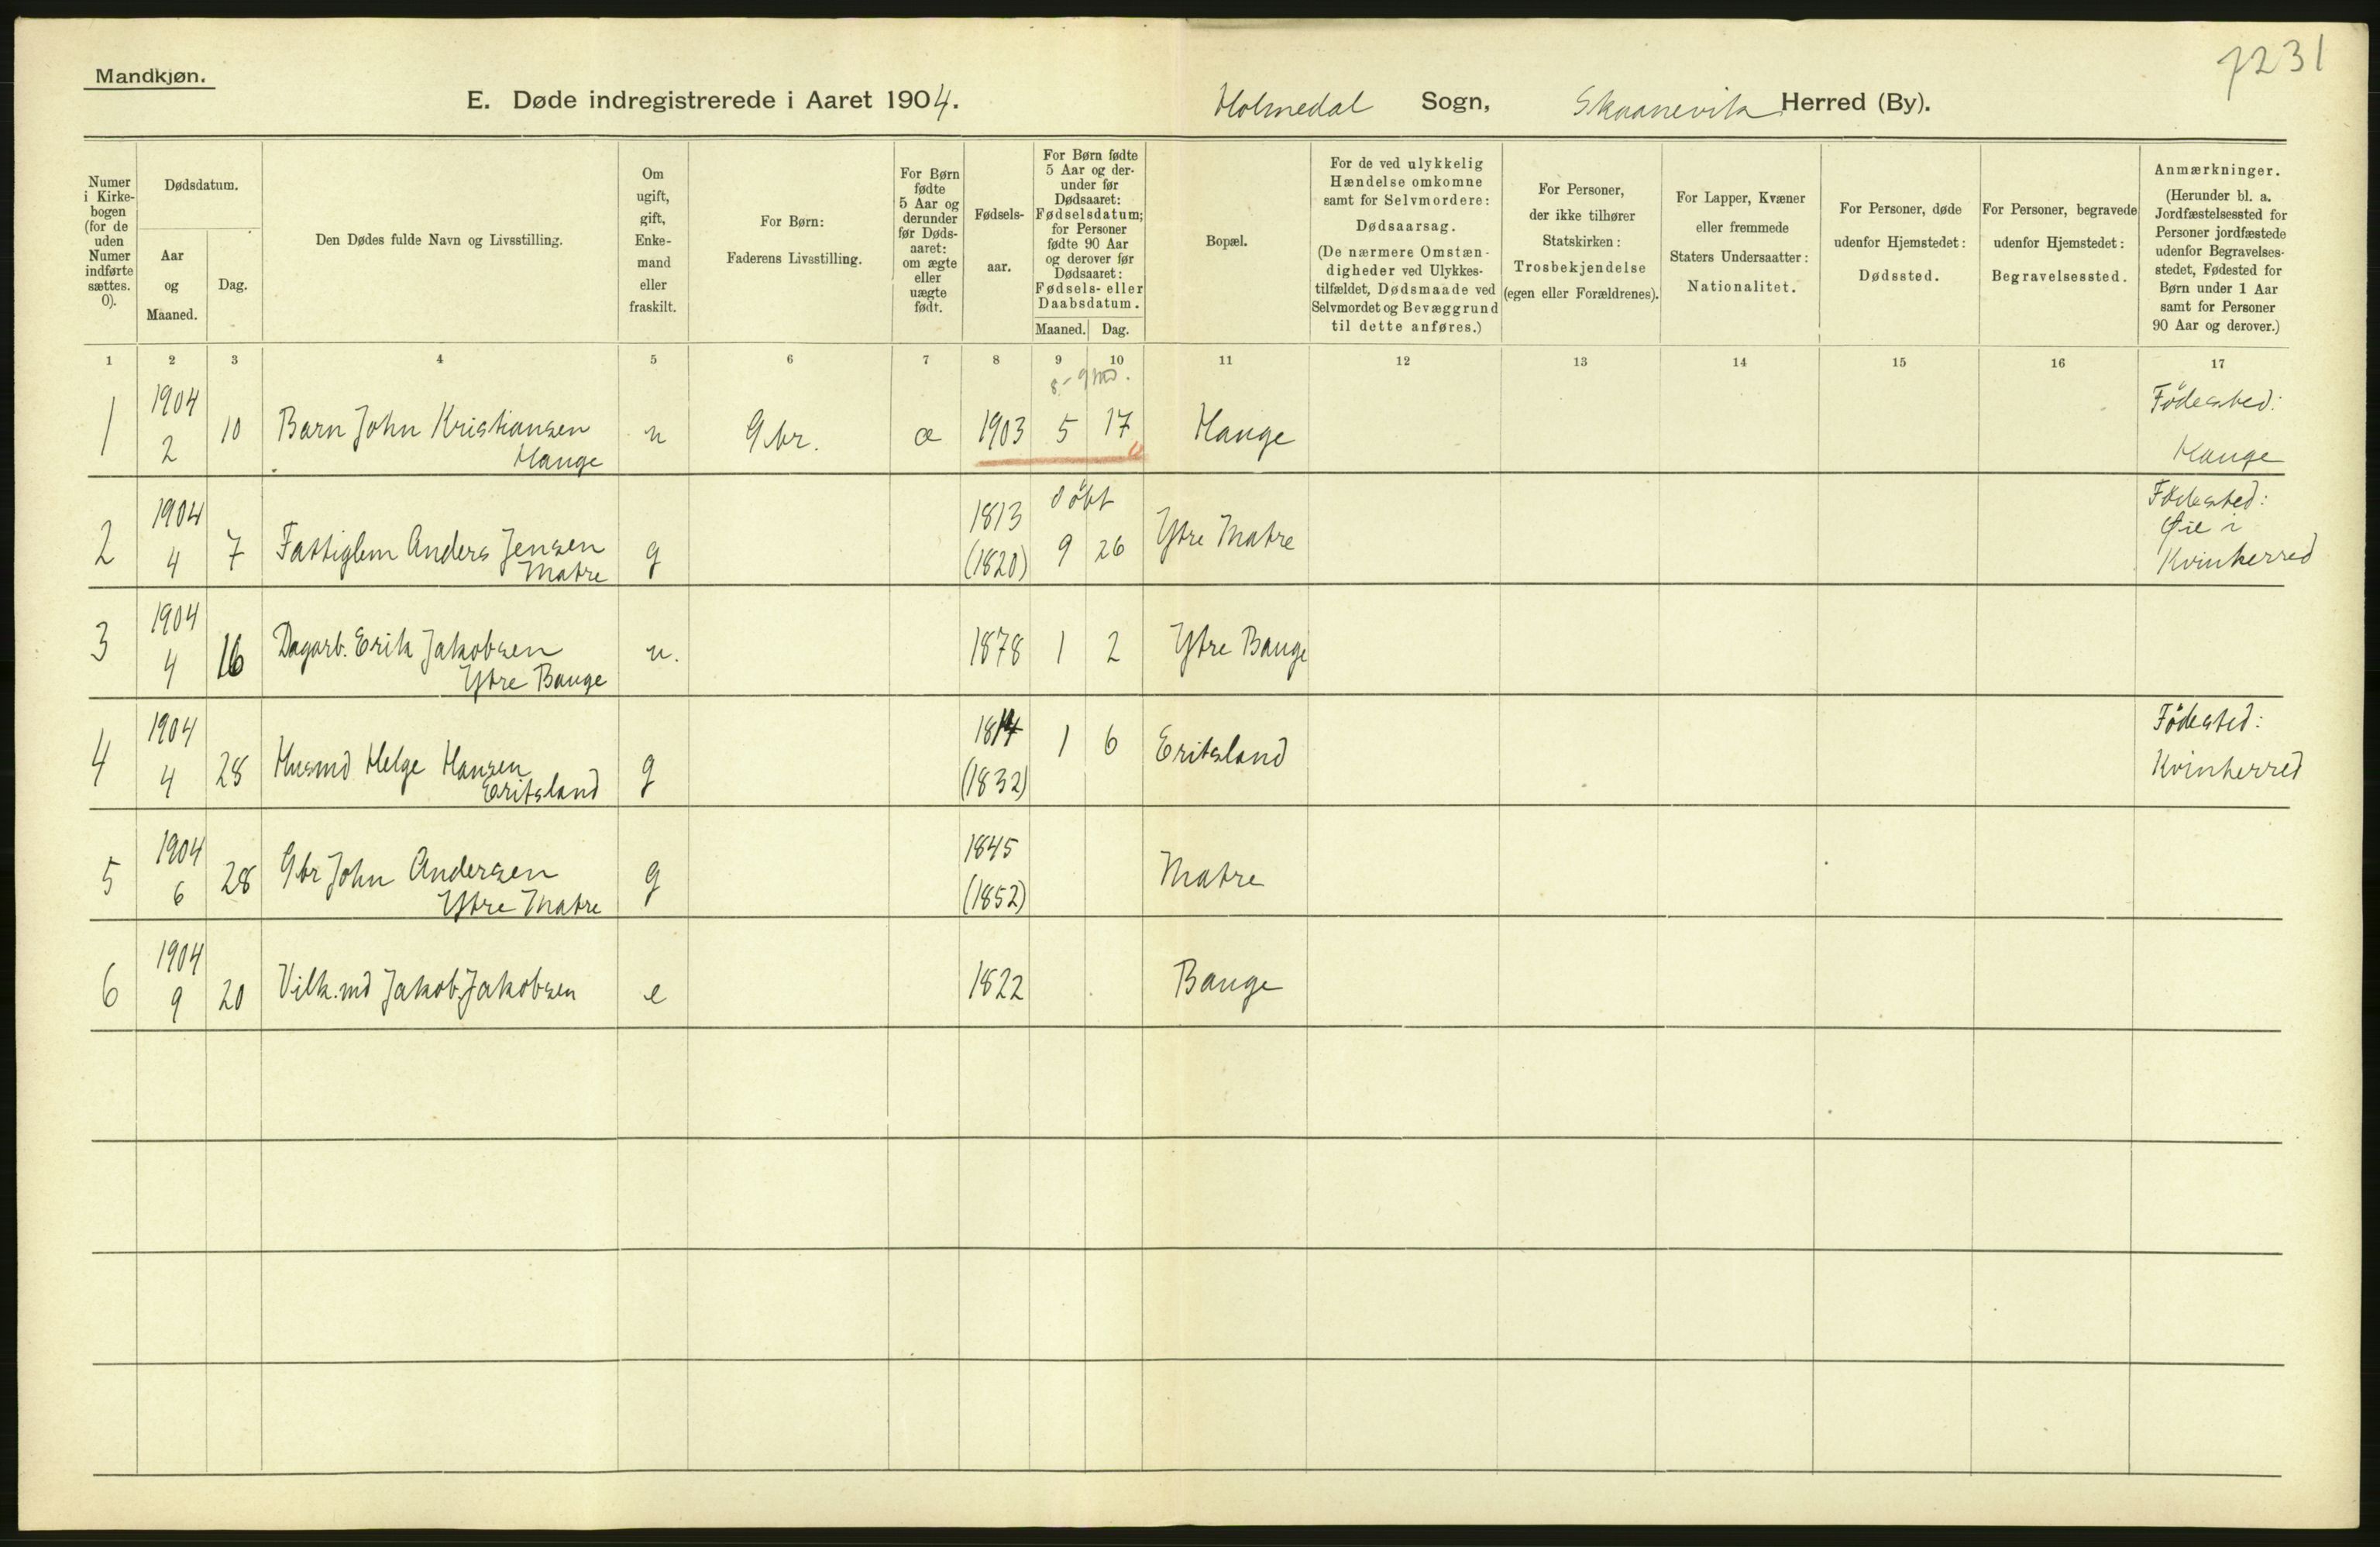 7231
Mandkjøn.
E. Døde indregistrerede i Aaret 1904.
Holmedal Sogn, Skaanevik Herred (By).
Numer
i Kirke-
bogen
(for de
uden
Numer
indførte
sættes.
0).
Dødsdatum.
Aar
og
Maaned.
Dag.
Den Dødes fulde Navn og Livsstilling.
Om
ugift,
gift,
Enke-
mand
eller
fraskilt.
For Børn:
Faderens Livsstilling.
For Børn
fødte
5 Aar og
derunder
før Døds-
aaret:
om ægte
eller
uægte
født.
Fødsels-
aar.
For Børn fødte
5 Aar og der-
under før
Dødsaaret:
Fødselsdatum;
for Personer
fødte 90 Aar
og derover før
Dødsaaret:
Fødsels- eller
Daabsdatum.
Maaned. Dag.
Bopæl.
For de ved ulykkelig
Hændelse omkomne
samt for Selvmordere:
Dødsaarsag.
(De nærmere Omstæn-
digheder ved Ulykkes-
tilfældet, Dødsmaade ved
Selvmordet og Bevæggrund
til dette anføres.)
For Personer,
der ikke tilhører
Statskirken:
Trosbekjendelse
(egen eller Forældrenes).
For Lapper, Kvæner
eller fremmede
Staters Undersaatter:
Nationalitet.
For Personer, døde
udenfor Hjemstedet:
Dødssted.
For Personer, begravede
udenfor Hjemstedet:
Begravelsessted.
Anmærkninger.
(Herunder bl. a.
Jordfæstelsessted for
Personer jordfæstede
udenfor Begravelses-
stedet, Fødested for
Børn under 1 Aar
samt for Personer
90 Aar og derover.)
1 2 3 4 5 6 7 8 9 10 11 12 13 14 15 16 17
8-9 md.
1 1904 2 10 Barn John Kristiansen
Hauge
u Gbr. æ 1903 5 17 Hauge
Fødested:
Hauge
2 1904 4 7 Fattiglem Anders Jensen
Matre
g 1813
(1820)
døbt
9 26 Ytre Matre
Fødested:
Øie i
Kvinherred
3 1904 4 16 Dagarb. Erik Jakobsen
Ytre Bauge
u. 1878 1 2 Ytre Bauge
4 1904 4 28 Husmd Helge Hansen
Eritsland
g 1814
(1832)
1 6 Eritsland
Fødested:
Kvinherred
5 1904 6 28 Gbr John Andersen
Ytre Matre
g 1845
(1852)
Matre
6 1904 9 20 Vilk.md Jakob Jakobsen e 1822 Bauge